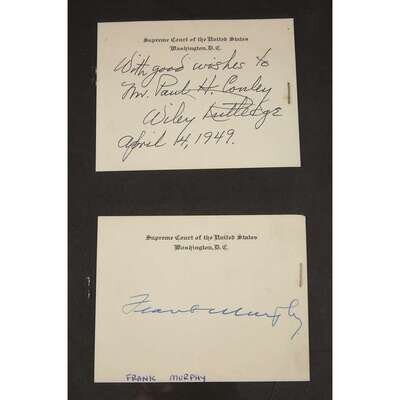 Supreme Court of the United States
Washington, D.C.
With good wishes to
Mr. Paul H. Conley
Wiley Rutledge
April 14, 1949.
Supreme Court of the United States
Washington, D.C.
Frank Murphy
FRANK MURPHY